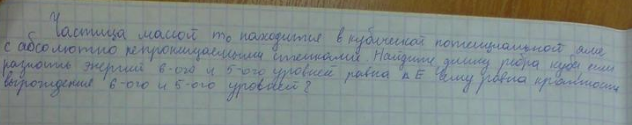 Частица массой m₀ находится в кубической потенциальной яме
с абсолютно непроницаемыми стенками. Найдите длину ребра куба если
разность энергий 6-ого и 5-ого уровней равна ΔE чему равна кратность
вырождения 6-ого и 5-ого уровней?